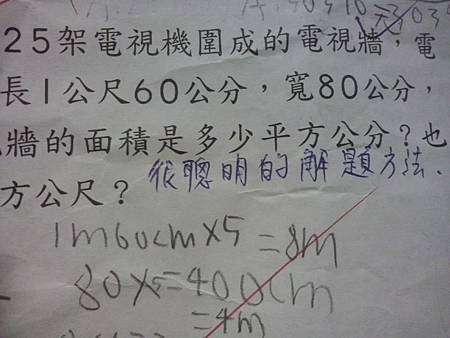 25架電視機圍成的電視牆，電
長1公尺60公分，寬80公分，
牆的面積是多少平方公分？也
方公尺？ 很聰明的解題方法.
1m60cm×5=8m
80×5=400cm
=4m